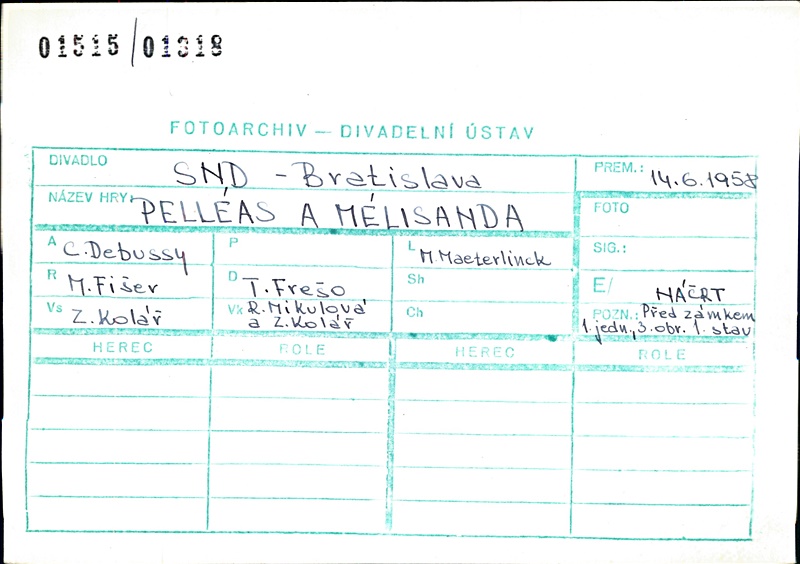 01515/01318
FOTOARCHIV — DIVADELNÍ ÚSTAV
DIVADLO SND - Bratislava
PREM.: 14.6.1958
NÁZEV HRY: PELLÉAS A MÉLISANDA
FOTO
A C. Debussy P L M. Maeterlinck
SIG.:
R M. Fišer D T. Frešo Sh
E/ NÁČRT
Vs Z. Kolář Vk R. Mikulová a Z. Kolář Ch
POZN.: Před zámkem
1. jedn., 3. obr. 1. stav
HEREC ROLE HEREC ROLE